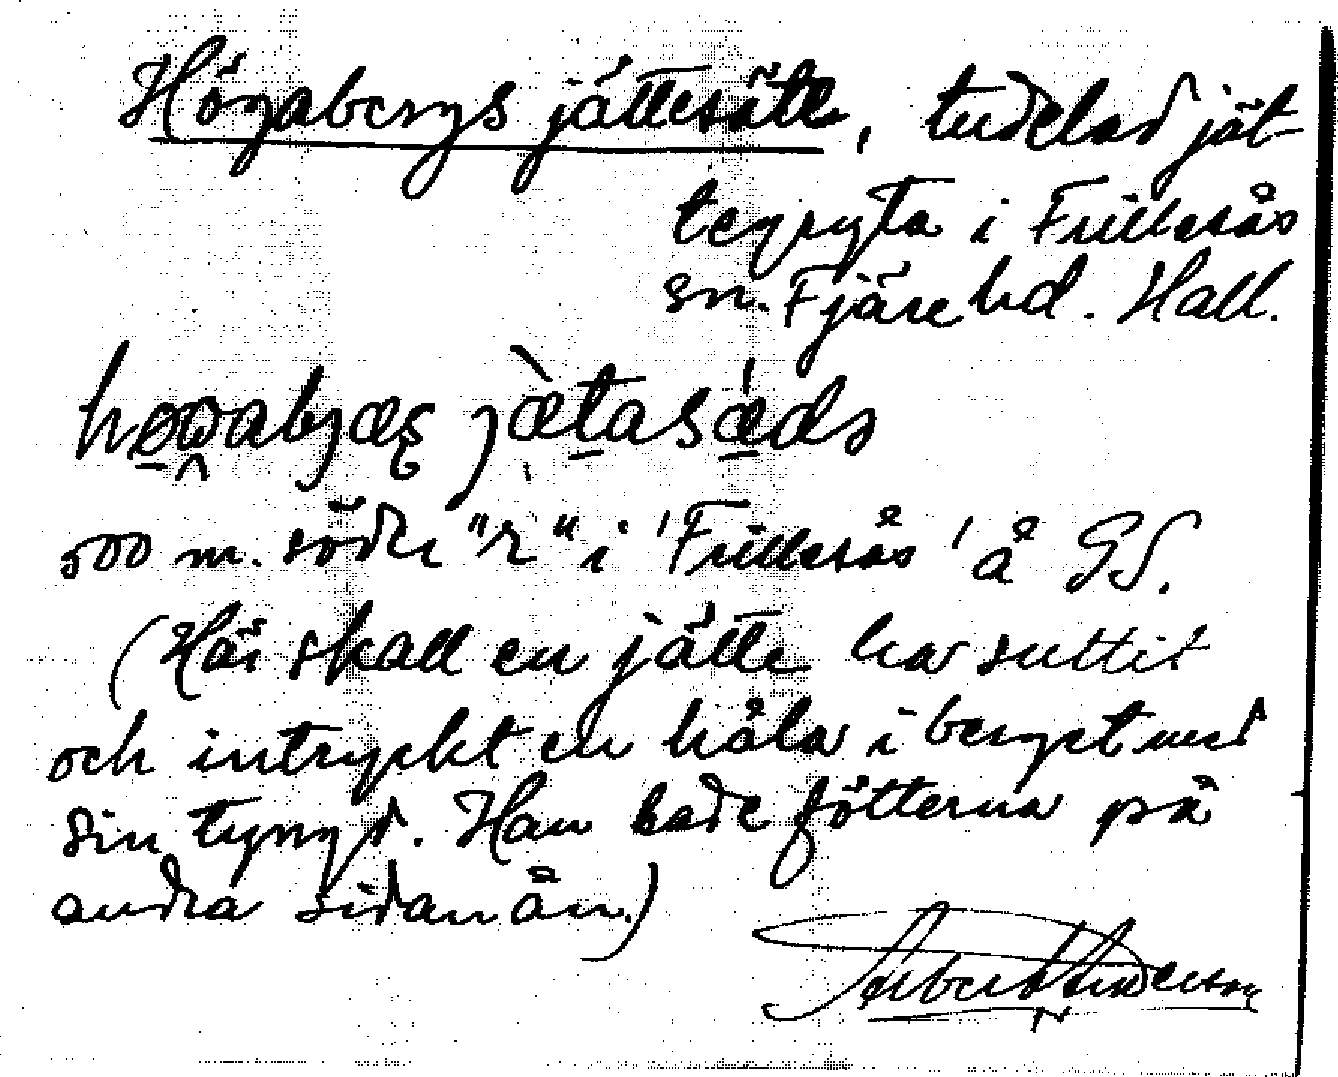 Högabergs jättesäte, tudelad jät-
tegryta i Frillesås
sn. Fjäre hd. Hall.
jætasæds
500 m. söder "r" i 'Frillesås' å GS.
(Här skall en jätte ha suttit
och intryckt en håla i berget med
sin tyngd. Han hade fötterna på
andra sidan ån.)
Albert Anderson